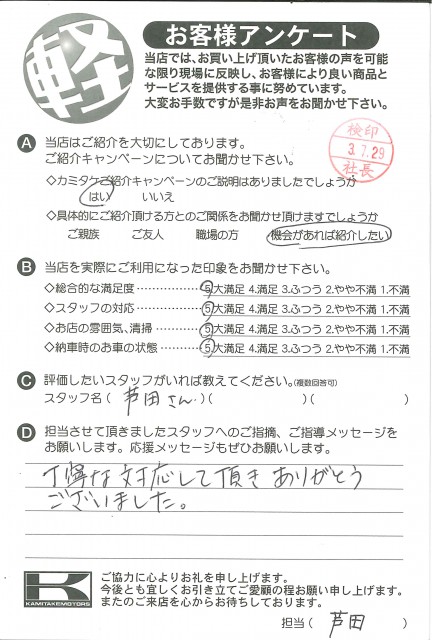 軽
お客様アンケート
当店では、お買い上げ頂いたお客様の声を可能
な限り現場に反映し、お客様により良い商品と
サービスを提供する事に努めています。
大変お手数ですが是非お声をお聞かせ下さい。
検印
3.7.29
社長
A 当店はご紹介を大切にしております。
ご紹介キャンペーンについてお聞かせ下さい。
◇カミタケご紹介キャンペーンのご説明はありましたでしょうか
はい いいえ
◇具体的にご紹介頂ける方とのご関係をお聞かせ頂けますでしょうか
ご親族 ご友人 職場の方 機会があれば紹介したい
B 当店を実際にご利用になった印象をお聞かせ下さい。
◇総合的な満足度・・・・・・・・・・・5.大満足 4.満足 3.ふつう 2.やや不満 1.不満
◇スタッフの対応・・・・・・・・・・・5.大満足 4.満足 3.ふつう 2.やや不満 1.不満
◇お店の雰囲気、清掃・・・・・・・・5.大満足 4.満足 3.ふつう 2.やや不満 1.不満
◇納車時のお車の状態・・・・・・・・5.大満足 4.満足 3.ふつう 2.やや不満 1.不満
C 評価したいスタッフがいれば教えてください。(複数回答可)
スタッフ名(芦田さん)( )( )
D 担当させて頂きましたスタッフへのご指摘、ご指導メッセージを
お願いします。応援メッセージもぜひお願いします。
丁寧な対応して頂きありがとう
ございました。
K
KAMITAKEMOTORS
ご協力に心よりお礼を申し上げます。
今後とも宜しくお引き立てご愛顧の程お願い申し上げます。
またのご来店を心からお待ちしております。
担当( 芦田 )